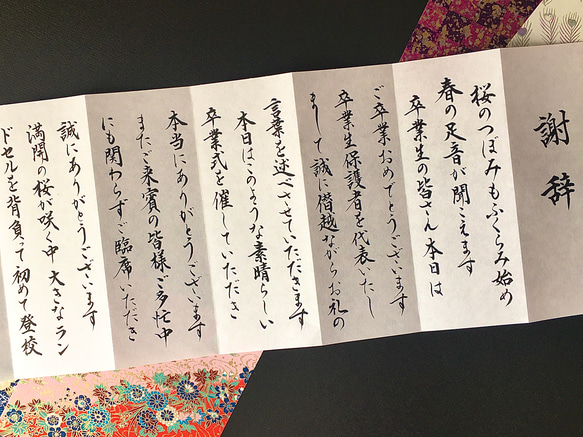 謝辞
桜のつぼみもふくらみ始め
春の足音が聞こえます
卒業生の皆さん 本日は
ご卒業おめでとうございます
卒業生保護者を代表いたし
まして誠に僭越ながらお礼の
言葉を述べさせていただきます
本日はこのような素晴らしい
卒業式を催していただき
本当にありがとうございます
またご来賓の皆様ご多忙中
にも関わらずご臨席いただき
誠にありがとうございます
満開の桜が咲く中 大きなラン
ドセルを背負って初めて登校